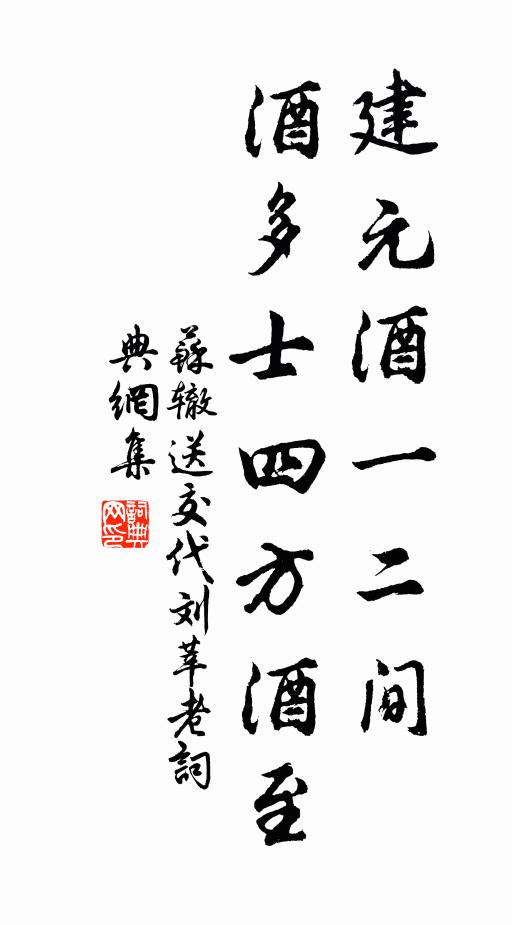 建元酒一二间
酒多士四方酒至
蘇辙送交代刘莘老詞
典網集
詞典网印